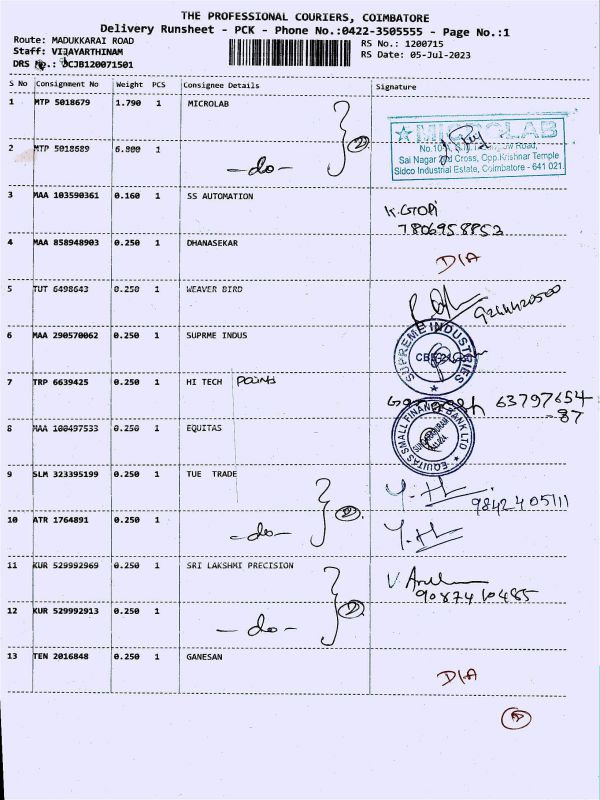 THE PROFESSIONAL COURIERS, COIMBATORE
Delivery Runsheet - PCK - Phone No.:0422-3505555 - Page No.:1
Route: MADUKKARAI ROAD
RS No.: 1200715
Staff: VIJAYARTHINAM
RS Date: 05-Jul-2023
DRS No.: CJB120071501
S No Consignment No Weight PCS Consignee Details Signature
1 MTP 5018679 1.790 1 MICROLAB
2 MTP 5018689 6.800 1 -do- 2
MICROLAB
Sai Nagar 2nd Cross, Opp.Krishnar Temple
Sidco Industrial Estate, Coimbatore - 641 021.
3 MAA 103590361 0.160 1 SS AUTOMATION K.GOPI
7806958852
4 MAA 858948903 0.250 1 DHANASEKAR D/A
5 TUT 6498643 0.250 1 WEAVER BIRD 9244420500
6 MAA 290570062 0.250 1 SUPRME INDUS
SUPREME INDUSTRIES
7 TRP 6639425 0.250 1 HI TECH POINTS 63797654
-87
8 MAA 100497533 0.250 1 EQUITAS
EQUITAS SMALL FINANCE BANK LTD
9 SLM 323395199 0.250 1 TUE TRADE 9842405111
10 ATR 1764891 0.250 1 -do- 2
11 KUR 529992969 0.250 1 SRI LAKSHMI PRECISION
9087410485
12 KUR 529992913 0.250 1 -do- 2
13 TEN 2016848 0.250 1 GANESAN D/A